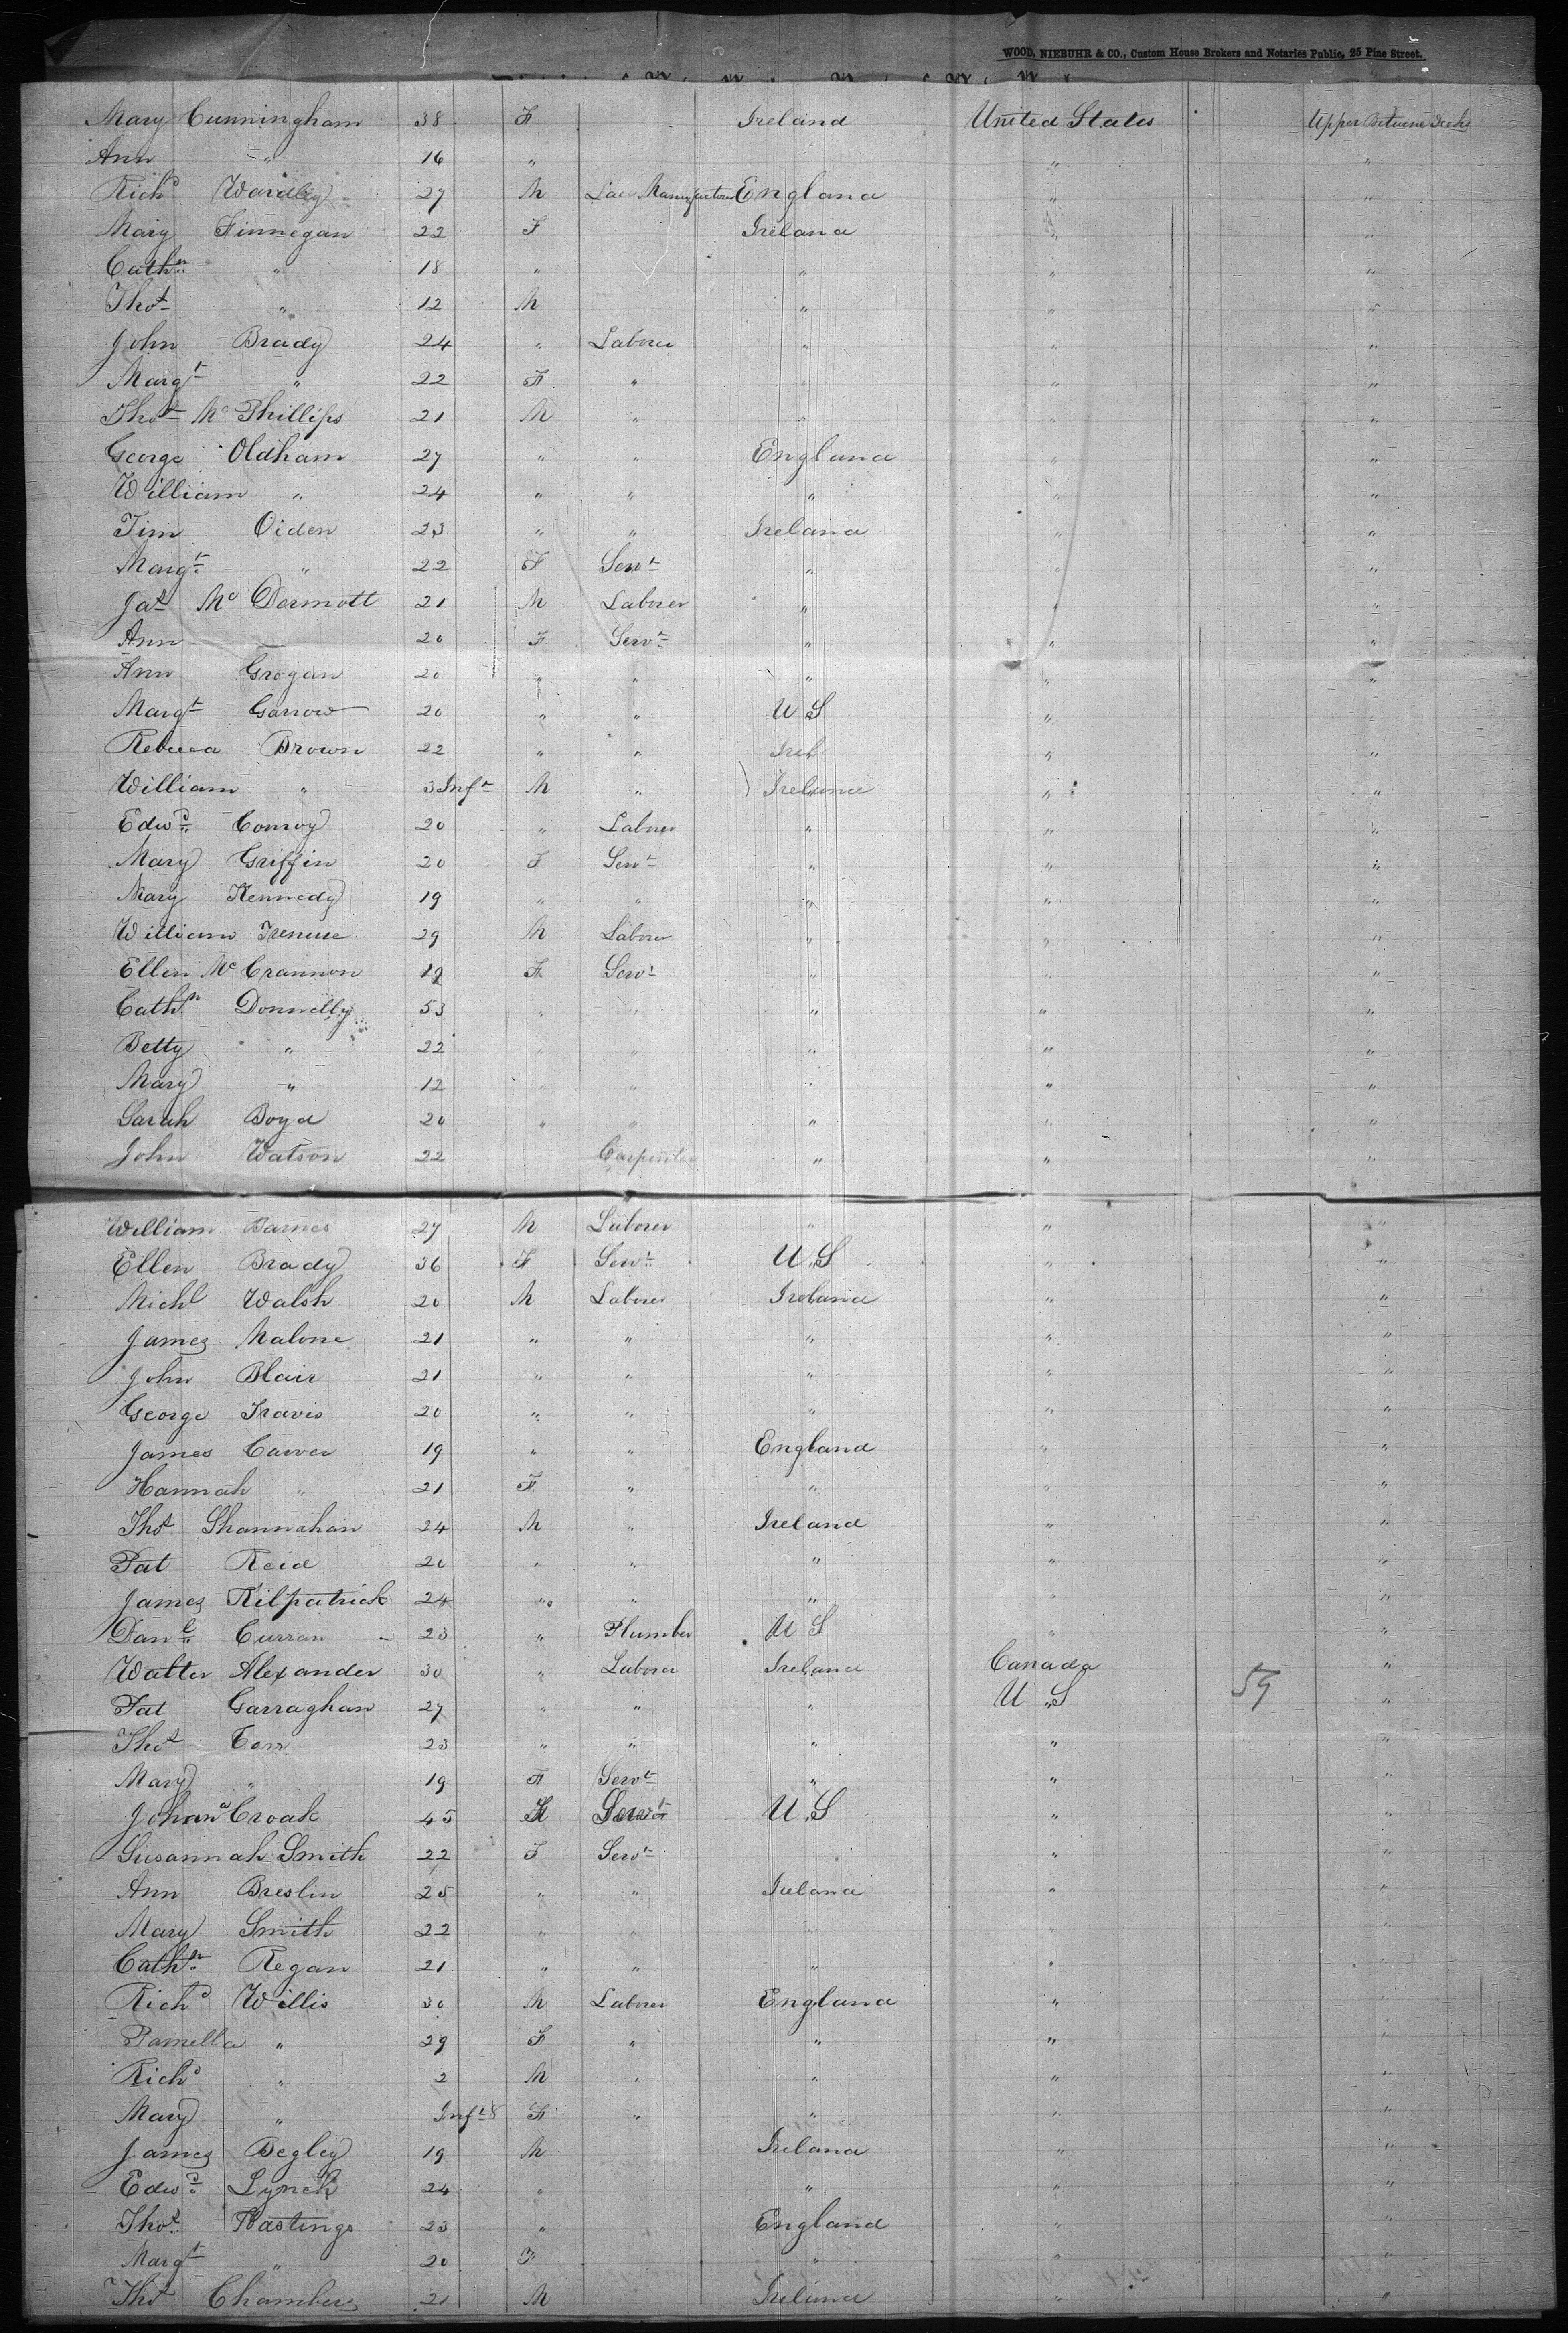 WOOD, NIEBUHR & CO., Custom House Brokers and Notaries Public, 25 Pine Street.
Mary Cunningham 38 F Ireland United States Upper Between Decks
Ann " 16 " " "
Richd Wardley 27 M Lace Manufacturer England " "
Mary Finnegan 22 F Ireland " "
Cathn " 18 " " " "
Thos " 12 M " " "
John Brady 24 " Laborer " " "
Margt " 22 F " " " "
Thos Mc Phillips 21 M " " " "
George Oldham 27 " " England " "
William " 24 " " " " "
Tim Oiden 23 " " Ireland " "
Margt " 22 F Servt " " "
Jas Mc Dermott 21 M Laborer " " "
Ann 20 F Servt " " "
Ann Grogan 20 " " " " "
Margt Garrow 20 " " U S " "
Rebecca Brown 22 " " Irel " "
William " 3 Inft M " Ireland " "
Edwd Conroy 20 " Laborer " " "
Mary Griffin 20 F Servt " " "
Mary Kennedy 19 " " " " "
William 29 M Laborer " " "
Ellen Mc Crannon 19 F Servt " " "
Cathn Donnelly 53 " " " " "
Betty " 22 " " " " "
Mary " 12 " " " " "
Sarah Boyd 20 " " " " "
John Watson 22 Carpenter " " "
William Barnes 27 M Laborer " " "
Ellen Brady 36 F Servt U S " "
Michl Walsh 20 M Laborer Ireland " "
James Malone 21 " " " " "
John Blair 21 " " " " "
George Travis 20 " " " " "
James Carver 19 " " England " "
Hannah " 21 F " " " "
Thos Shannahan 24 M " Ireland " "
Pat Reid 20 " " " " "
James Kilpatrick 24 " " " " "
Danl Curran 23 " Plumber U S " "
Walter Alexander 30 " Laborer Ireland Canada "
Pat Garraghan 27 " " " U S 59 "
Thos Corr 23 " " " " "
Mary " 19 F Servt " " "
Johana Croak 45 F Servt U S " "
Susannah Smith 22 F Servt " "
Ann Breslin 25 " " Ireland " "
Mary Smith 22 " " " " "
Cathn Regan 21 " " " " "
Richd Willis 30 M Laborer England " "
Pamella " 29 F " " " "
Richd " 2 M " " " "
Mary " Inft 8 F " " " "
James Begley 19 M Ireland " "
Edwd Lynch 24 " " " "
Thos Hastings 23 " England " "
Margt " 20 F " " "
Thos Chambers 21 M Ireland " "